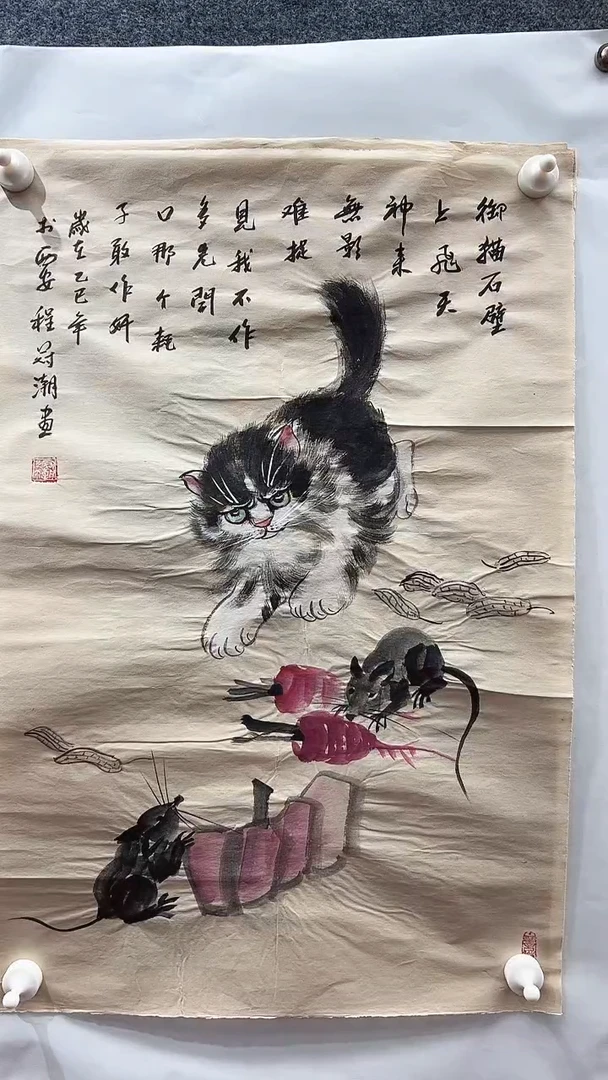 御猫石壁
上飛天
神来
無影
难捉
見我不作
多 問
口那个耗
子敢作奸
歲在乙巳年
於西安程 潮畫